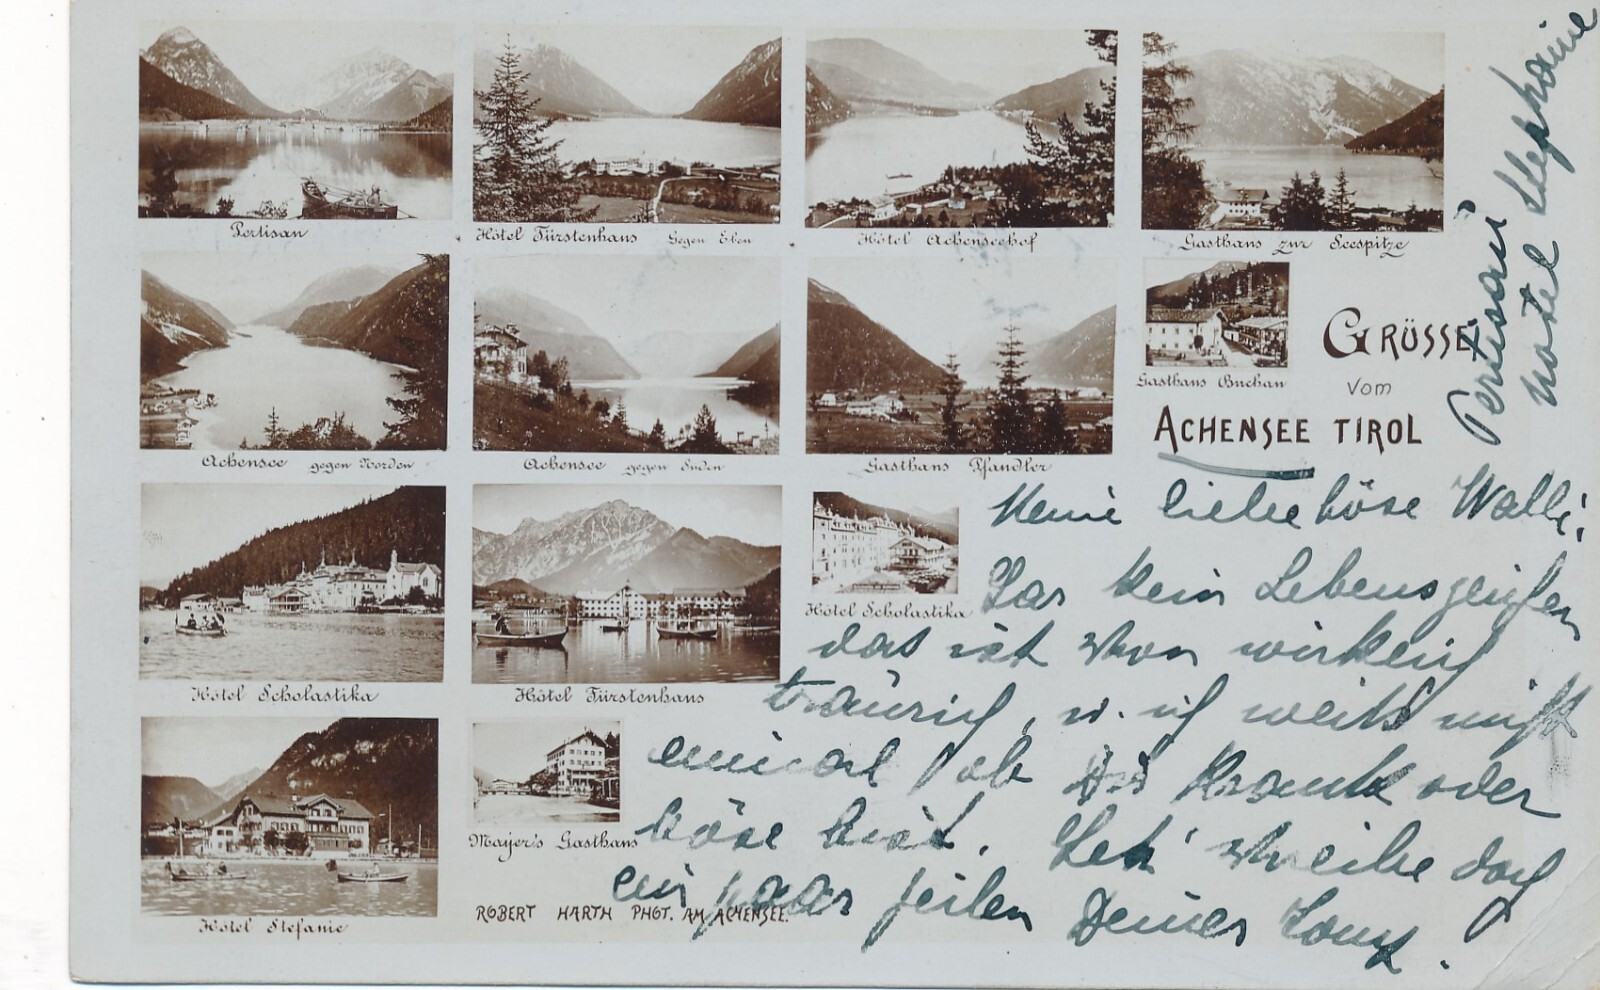 Pertisau
Hôtel Fürstenhaus Gegen Eben
Hôtel Achenseehof
Gasthaus zur Seespitze
Achensee gegen Norden
Achensee gegen Süden
Gasthaus Pfandler
Gasthaus Buchau
GRÜSSE
vom
ACHENSEE TIROL
Hôtel Scholastika
Hôtel Fürstenhaus
Hôtel Scholastika
Hôtel Stefanie
Mayer's Gasthaus
ROBERT HARTH PHOT. AM ACHENSEE.
Pertisau
Hotel Stephanie
Meine liebe böse Walli!
Gar kein Lebenszeichen
das ist schon wirklich
traurig, u. ich weiß nicht
einmal ob Du krank oder
böse bist. Geh' schreibe doch
ein paar Zeilen Deiner